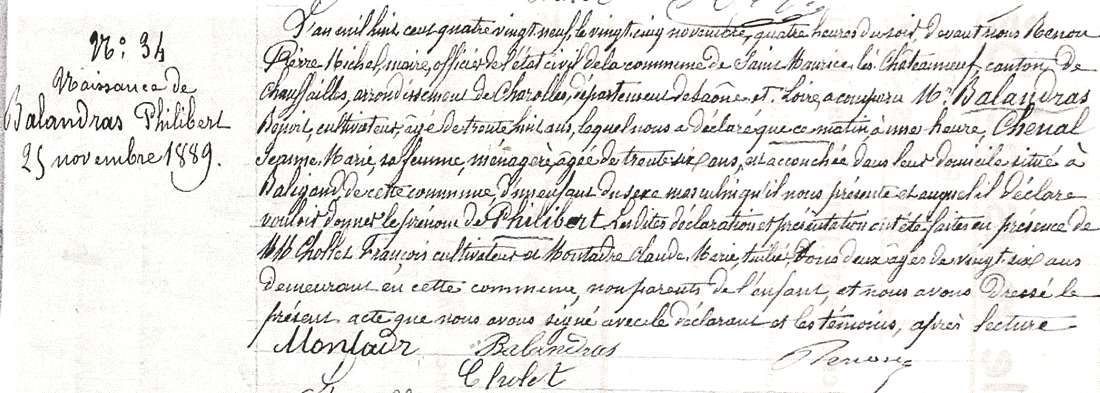 N° 34
Naissance de
Balandras Philibert
25 novembre 1889.
L'an mil huit cent quatre vingt neuf, le vingt cinq novembre, quatre heures du soir, devant nous Renon
Pierre Michel, maire, officier de l'état civil de la commune de Saint Maurice les Châteauneuf, canton de
Chauffailles, arrondissement de Charolles, département de Saône et Loire, a comparu Mr Balandras
Benoit, cultivateur, âgé de trente huit ans, lequel nous a déclaré que ce matin à une heure, Chenal
Jeanne Marie, sa femme, ménagère, âgée de trente six ans, est accouchée dans leur domicile situé à
Baligand, de cette commune, d'un enfant du sexe masculin qu'il nous présente et auquel il déclare
vouloir donner le prénom de Philibert. Les dites déclaration et présentation ont été faites en présence de
MM Chollet François cultivateur et Montadre Claude Marie, tuilier, tous deux âgés de vingt six ans
demeurant en cette commune, non parents de l'enfant, et nous avons dressé le
présent acte que nous avons signé avec le déclarant et les témoins, après lecture
Montadr Balandras Renon
Cholet